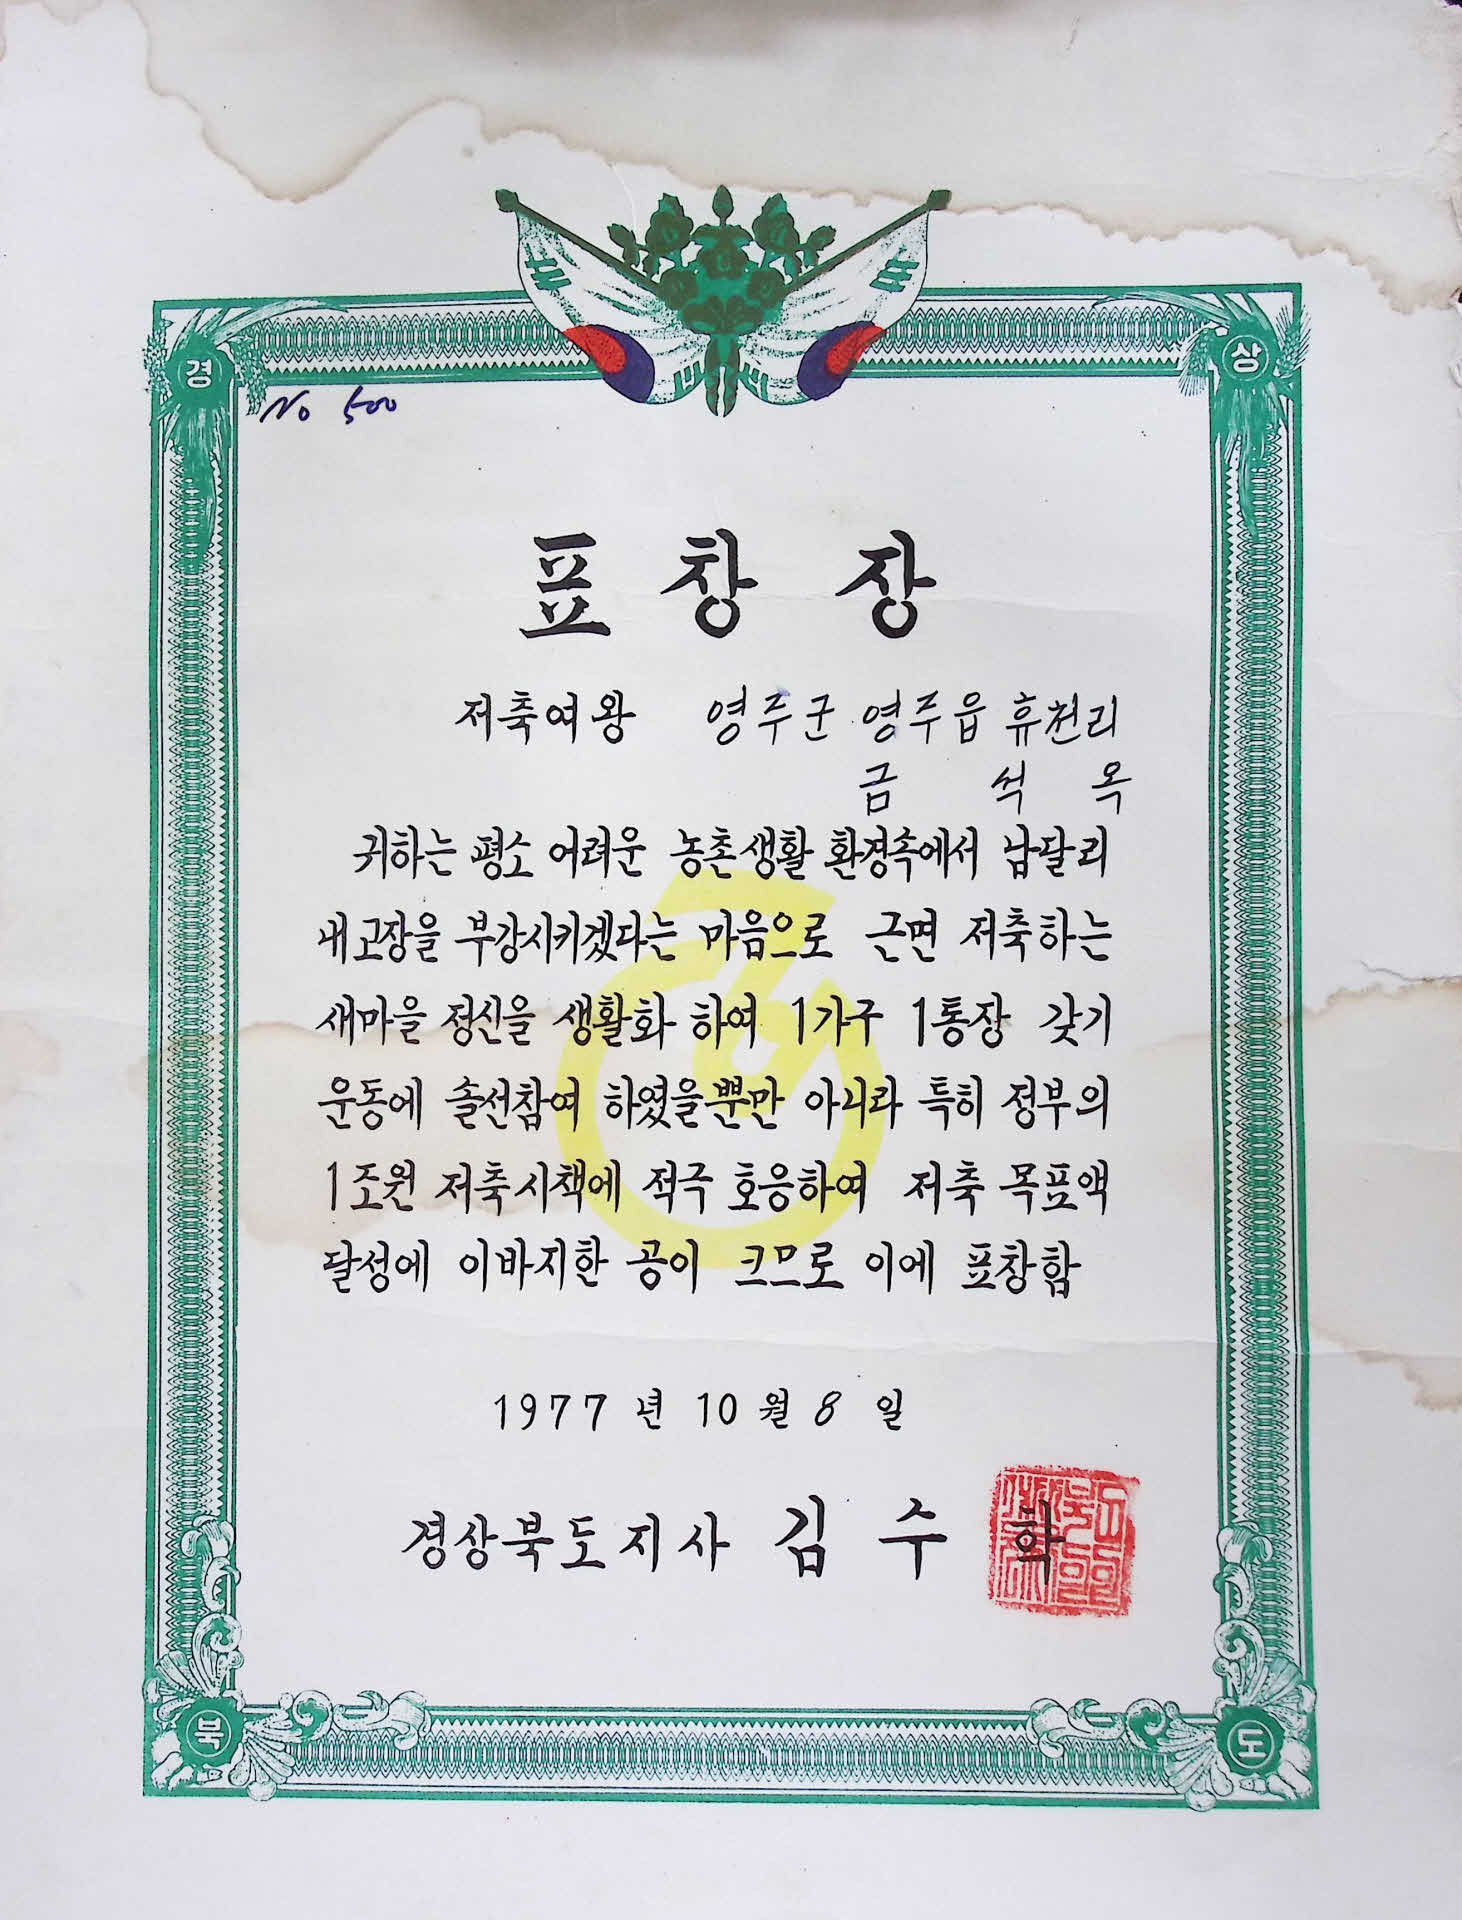 경 상
No 500
표창장
저축여왕 영주군 영주읍 휴천리
금 석 옥
귀하는 평소 어려운 농촌생활 환경속에서 남달리
내고장을 부강시키겠다는 마음으로 근면 저축하는
새마을 정신을 생활화 하여 1가구 1통장 갖기
운동에 솔선참여 하였을뿐만 아니라 특히 정부의
1조원 저축시책에 적극 호응하여 저축 목표액
달성에 이바지한 공이 크므로 이에 표창함
1977년 10월 8일
경상북도지사 김 수 학
북 도